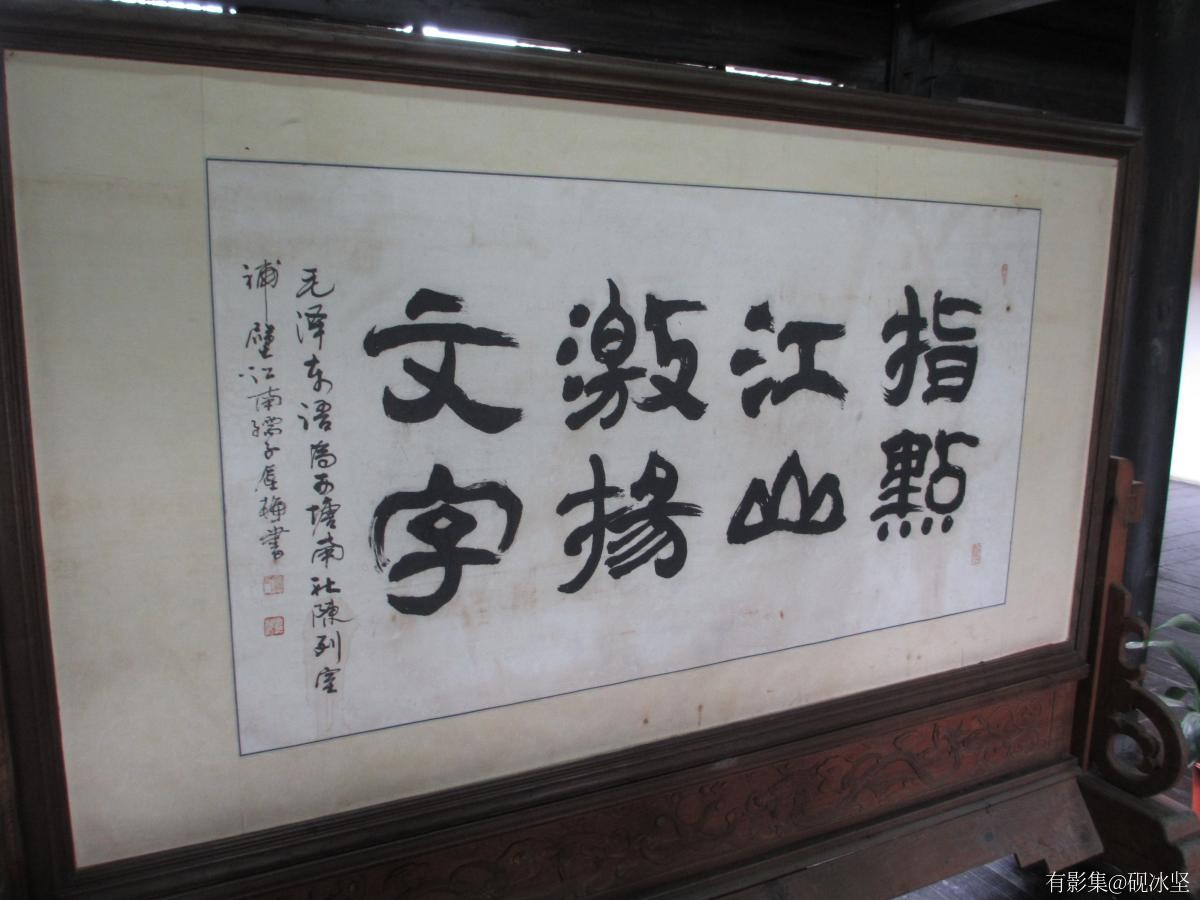 指點
江山
激揚
文字
毛泽东语为西塘南社陳列室
補壁江南孺子屠梅書
有影集@砚冰坚